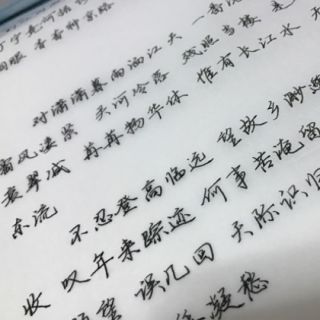 对潇潇暮雨洒江天 一番洗
霜风凄紧 关河冷落 残照当楼 是
衰翠减 苒苒物华休 惟有长江水 无
东流
不忍登高临远 望故乡渺邈
收 叹年来踪迹 何事苦淹留
颙望 误几回 天际识归
凝愁